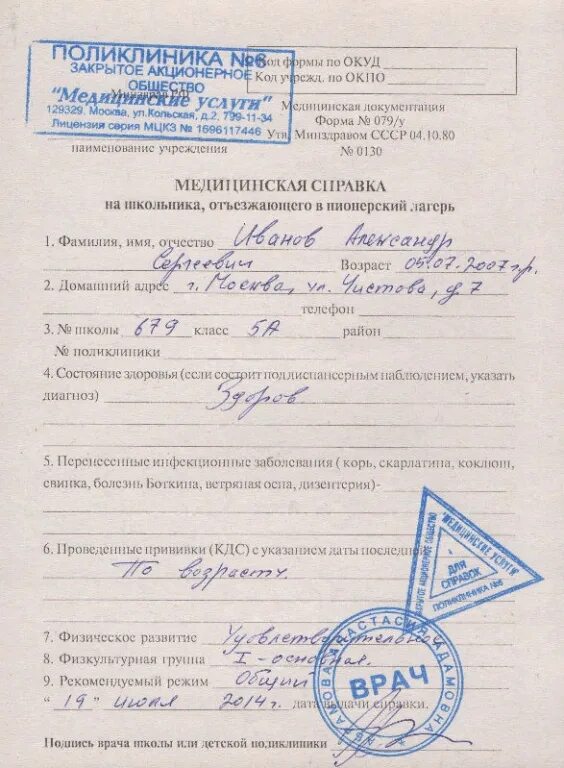 ПОЛИКЛИНИКА №6
ЗАКРЫТОЕ АКЦИОНЕРНОЕ
ОБЩЕСТВО
"Медицинские услуги"
129329, Москва, ул.Кольская, д.2, 799-11-34
Лицензия серия МЦКЗ № 1696117446
Минздрав РФ
наименование учреждения
Код формы по ОКУД
Код учрежд. по ОКПО
Медицинская документация
Форма № 079/у
Утв. Минздравом СССР 04.10.80
№ 0130
МЕДИЦИНСКАЯ СПРАВКА
на школьника, отъезжающего в пионерский лагерь
1. Фамилия, имя, отчество Иванов Александр
Сергеевич Возраст 05.07.2007г.р.
2. Домашний адрес г. Москва, ул. Чистова, д.7
телефон
3. № школы 679 класс 5А район
№ поликлиники
4. Состояние здоровья (если состоит под диспансерным наблюдением, указать
диагноз) Здоров
5. Перенесенные инфекционные заболевания ( корь, скарлатина, коклюш,
свинка, болезнь Боткина, ветряная оспа, дизентерия)-
6. Проведенные прививки (КДС) с указанием даты последней
По возрасту.
"МЕДИЦИНСКИЕ УСЛУГИ"
ЗАКРЫТОЕ АКЦИОНЕРНОЕ ОБЩЕСТВО
ДЛЯ
СПРАВОК
ПОЛИКЛИНИКА №6
7. Физическое развитие Удовлетворительное
8. Физкультурная группа I - основная.
9. Рекомендуемый режим Общий
" 19 " июля 2014г. дата выдачи справки.
АНАСТАСИЯ АДАМОВНА
ВРАЧ
Подпись врача школы или детской поликлиники